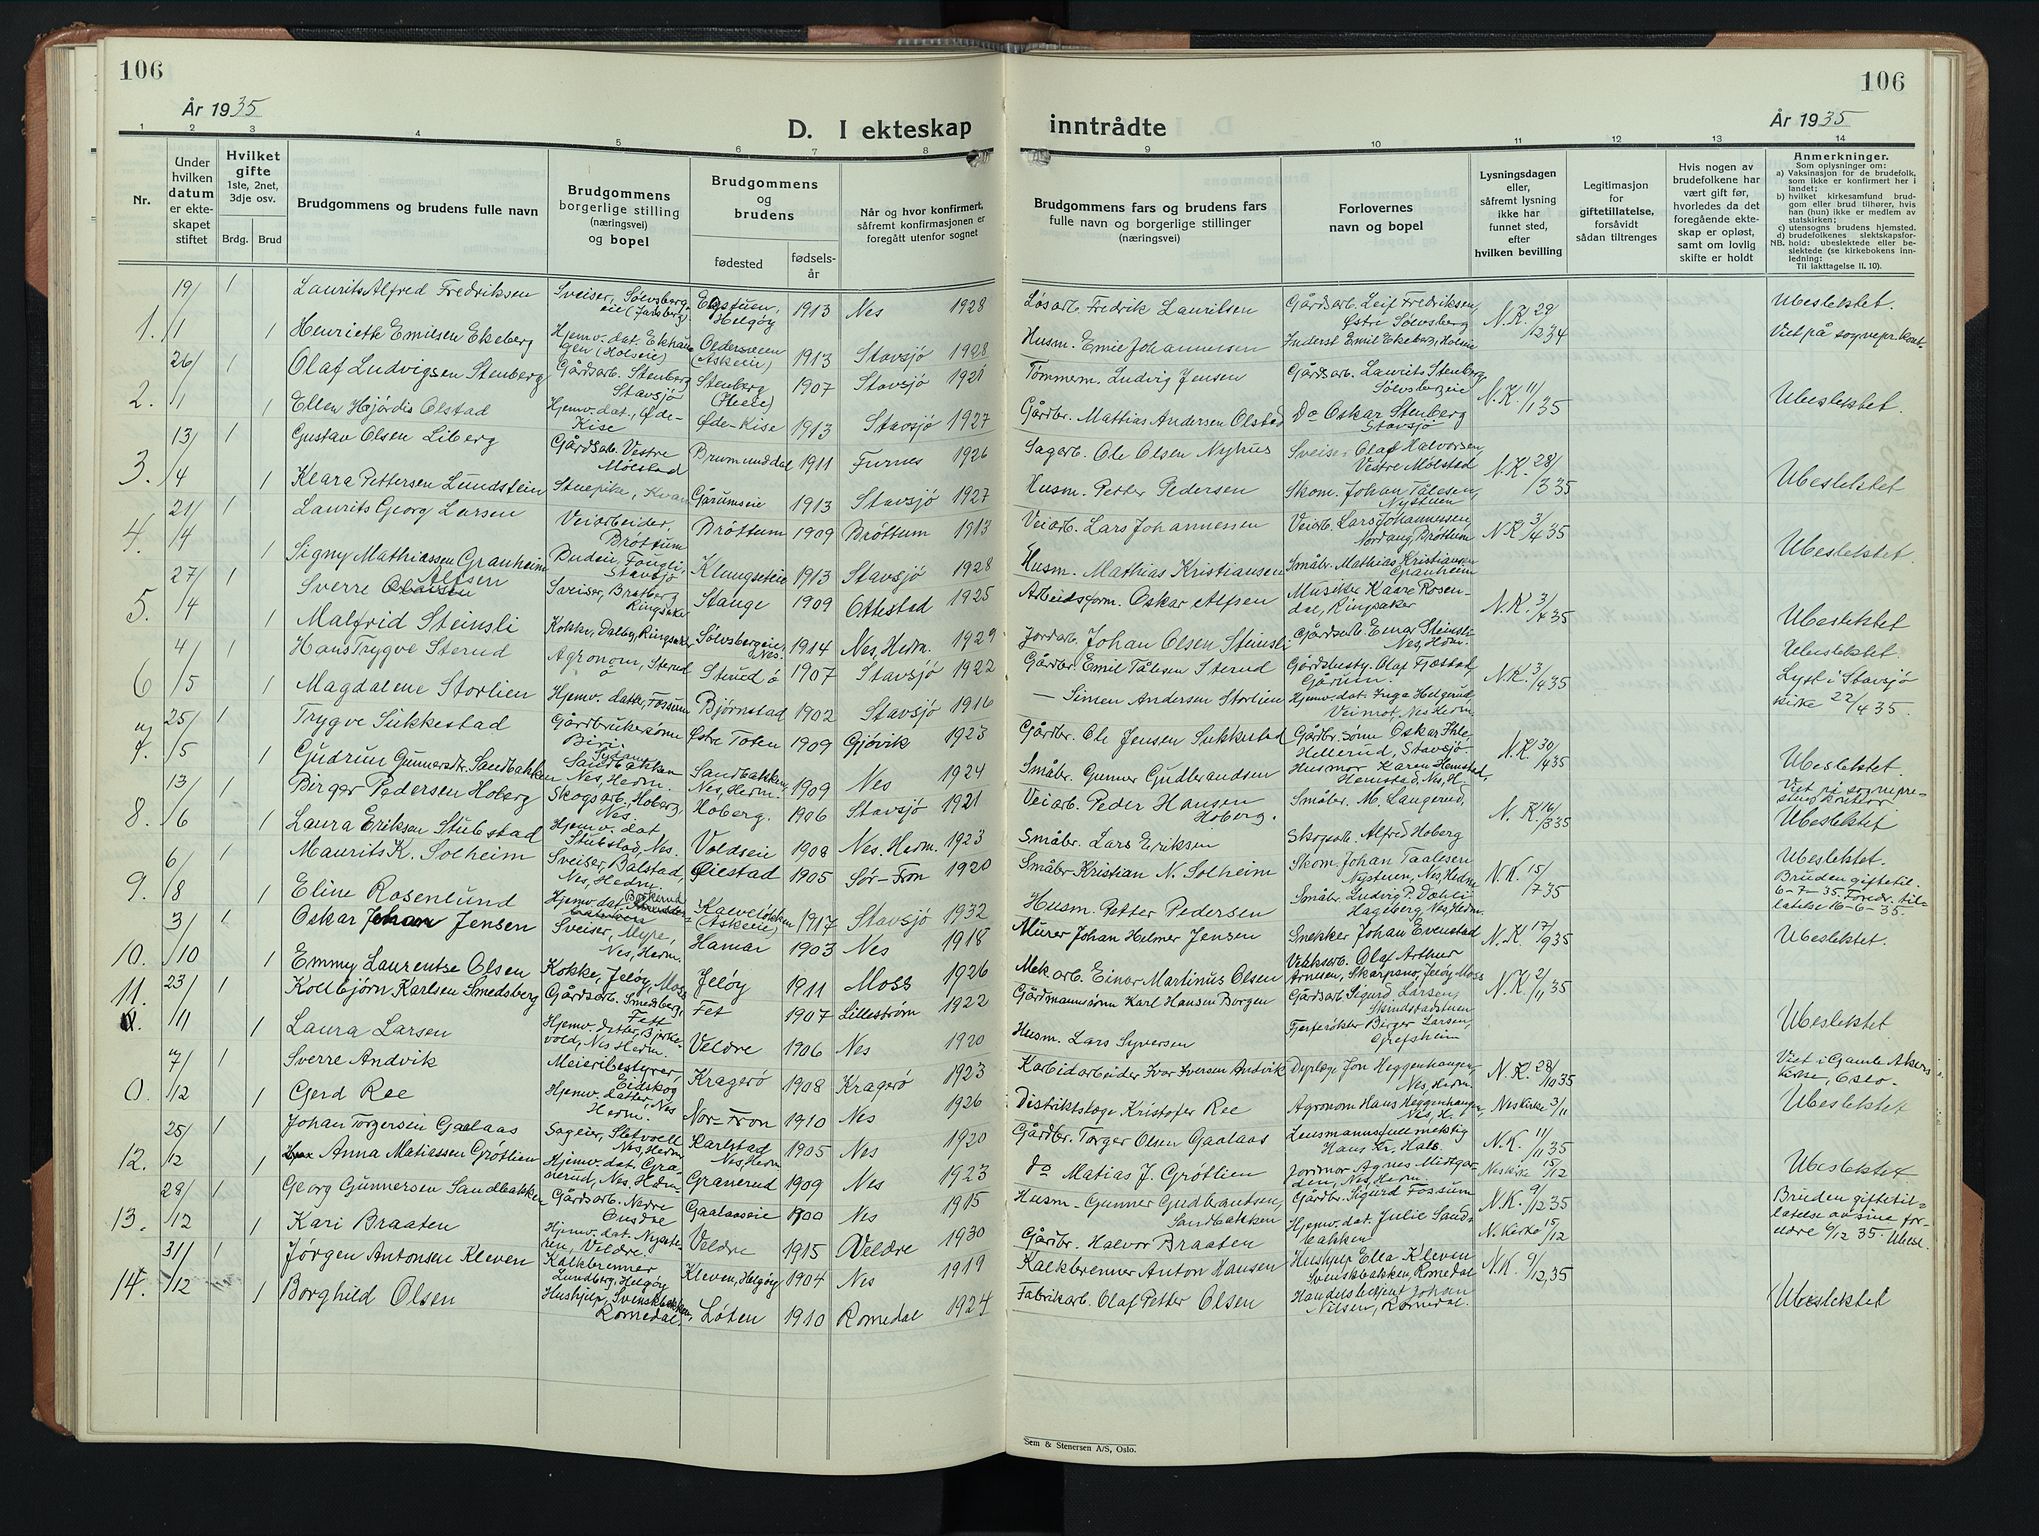 106
106
År 1935
År 1935
D. I ekteskap inntrådte
1 2 3 4 5 6 7 8 9 10 11 12 13 14
Nr.
Under hvilken datum er ekteskapet stiftet
Hvilket gifte 1ste, 2net, 3dje osv.
Brdg. Brud
Brudgommens og brudens fulle navn
Brudgommens borgerlige stilling (næringsvei) og bopel
Brudgommens og brudens
fødested
fødsels-år
Når og hvor konfirmert, såfremt konfirmasjonen er foregått utenfor sognet
Brudgommens fars og brudens fars fulle navn og borgerlige stillinger (næringsvei)
Forlovernes navn og bopel
Lysningsdagen eller, såfremt lysning ikke har funnet sted, efter hvilken bevilling
Legitimasjon for giftetillatelse, forsåvidt sådan tiltrenges
Hvis nogen av brudefolkene har vært gift før, hvorledes da det foregående ekteskap er opløst, samt om lovlig skifte er holdt
Anmerkninger.
Som oplysninger om:
a) Vaksinasjon for de brudefolk, som ikke er konfirmert her i landet;
b) hvilket kirkesamfund brudgom eller brud tilhører, hvis han (hun) ikke er medlem av statskirken;
c) utensogns brudens hjemsted.
d) brudefolkenes slektskapsforhold: ubeslektede eller beslektede (se kirkebokens innledning:
NB.
Til iakttagelse II. 10).
1. 19/1 1 Laurits Alfred Fredriksen Sveiser, Sølvsbergeie 1913 Nes 1928 Løsarb. Fredrik Lauritsen Gårdsarb. Leif Fredriksen, Østre Sølvsberg N.K. 29/12 34 Ubeslektet.
1 Henriette Emilsen Ekeberg Hjemv. dat. 1913 Stavsjø 1928 Husm. Emil Johannessen Inderst Emil Ekeberg, Viet på sognepr. kont.
2. 26/1 1 Olaf Ludvigsen Stenberg Gårdsarb. Stenberg Stavsjø Stenberg 1907 Stavsjø 1921 Tømmerm. Ludvig Jensen Gårdsarb. Laurits Stenberg Sølvsbergeie N.K. 11/1 35
1 Ellen Hjørdis Olstad Hjemv. dat., Øde-Kise Øde-Kise 1913 Stavsjø 1927 Gårdbr. Mathias Andersen Olstad Do Oskar Stenberg Stavsjø Ubeslektet.
3. 13/4 1 Gustav Olsen Liberg Gårdsarb. Vestre Mølstad Brumunddal 1911 Furnes 1926 Sagarb. Ole Olsen Nyhus Sveiser Olaf Halvorsen Vestre Mølstad N.K. 28/3 35
1 Klara Pettersen Lundstein Stuepike, Kvam Gårumseie 1913 Stavsjø 1927 Husm. Petter Pedersen Skom. Johan Tålesen, Nystuen Ubeslektet
4. 21/4 1 Laurits Georg Larsen Veiarbeider, Brøttum Brøttum 1909 Brøttum 1913 Veiarb. Lars Johannessen Veiarb. Lars Johannessen, Nordang Brøttum N.K. 3/4 35
1 Signy Mathiassen Granheim Budeie, Fougli, Stavsjø Klungseteie 1913 Stavsjø 1928 Husm. Mathias Kristiansen Småbr. Mathias Kristiansen Granheim Ubeslektet.
5. 27/4 1 Sverre Alfsen Sveiser, Bratberg Ringsaker Stange 1909 Ottestad 1925 Arbeidsform. Oskar Alfsen Musiker Kaare Rosendal, Ringsaker N.K. 3/4 35
Malfrid Steinsli Kokke, Dalby, Ringsaker Sølvsbergeie, Nes. 1914 Nes, Hedm. 1929 Jordarb. Johan Olsen Steinsli Gårdsarb. Einar Steinsli Nes, Hedm. Ubeslektet
6 4/5 1 Hans Trygve Sterud Agronom, Sterud ø Sterud ø 1907 Stavsjø 1922 Gårdbr. Emil Tålesen Sterud Gårdsbesty. Olaf Tjæstad, Gårum. N.K. 3/4 35 Ubeslektet.
1 Magdalene Storlien Hjemv. datter, Fossum Bjørnstad 1902 Stavsjø 1916 — Simen Andersen Storlien Hjemv. dat. Inga Helgerud, Veimot, Nes Hedm. Lyst i Stavsjø kirke 22/4 35.
7. 25/5 1 Trygve Sukkestad Gårdbrukersønn Biri. Østre Toten 1909 Gjøvik 1923 Gårdbr. Ole Jensen Sukkestad Gårdbr. sønn Oskar Ihle, Hellerud, Stavsjø N.K. 30/4 35
1 Gudrun Gunnersdtr. Sandbakken Sandbakken Nes, Hedm. Sandbakken, Nes, Hedm. 1909 Nes 1924 Småbr. Gunner Gudbrandsen Husmor Karen Hemstad, Hemstad, Nes, H. Ubeslektet.
8. 13/6 1 Birger Pedersen Hoberg Skogsarb. Hoberg, Nes Hoberg. 1906 Stavsjø 1921 Veiarb. Peder Hansen Hoberg. Småbr. M. Langerud, N.K. 16/3 35 Viet på sogneprestens kontor
1 Laura Eriksen Stubstad Hjemv. dat. Stubstad, Nes. Voldseie 1908 Nes. Hedm. 1923 Småbr. Lars Eriksen Skogsarb. Alfred Hoberg Ubeslektet
9. 6/8 1 Maurits K. Solheim Sveiser, Balstad, Nes, Hedm. Øiestad 1905 Sør-Fron 1920 Småbr. Kristian N. Solheim Skom. Johan Taalesen Nystuen, Nes, Hedm N.K. 15/7 35 Ubeslektet.
1 Eline Rosenlund Hjemv. dat. Kalveløkken (Askeie) 1917 Stavsjø 1932 Husm. Petter Pedersen Småbr. Ludvig P. Dæhli Hageberg, Nes, Hedm. Bruden giftetil. 6-7-35. Foredr. tillatelse 16-6-35.
10. 3/10 1 Oskar Johan Jensen Sveiser, Myre, Nes, Hedm. Hamar 1903 Nes 1918 Murer Johan Helmer Jensen Snekker Johan Evenstad N.K. 17/9 35
1 Emmy Laurentse Olsen Kokke, Jeløy, Moss Jeløy 1911 Moss 1926 Mek. arb. Einar Martinus Olsen Verksarb. Olaf Arthur Arnesen, Skarpsno, Jeløy, Moss Ubeslektet.
11. 23/11 1 Kolbjørn Karlsen Smedsberg Gårdsarb. Smedsberg, Fett Fet 1907 Lillestrøm 1922 Gårdmannssønn Karl Hansen Borgen Gårdsarb. Sigurd Larsen, N.K. 2/11 35
1 Laura Larsen Hjemv. datter, Bjerkevold, Nes Hedm. Veldre 1906 Nes 1920 Husm. Lars Syversen Birger Larsen, Grefsheim Ubeslektet
0. 7/12 1 Sverre Andvik Meieribestyrer, Eidskog Kragerø 1908 Kragerø 1923 Karbidarbeider Ivar Iversen Andvik Dyrlæge Jon Heggenhaugen, Nes, Hedm N.K. 28/10 35 Viet i Gamle Akers kirke, Oslo.
1 Gerd Ree Hjemv. datter, Nes Hedm. Nor-Fron 1910 Nes 1926 Distriktslæge Kristofer Ree Agronom Hans Heggenhaugen, Nes, H. Nes Kirke 3/11 Ubeslektet
12. 25/12 1 Johan Torgersen Gaalaas Sageier, Sletvold Nes, Hedm Karlstad Nes, Hedm 1905 Nes 1920 Gårdbr. Torger Olsen Gaalaas Lensmannsfullmektig Hans Kr. Hals N.K. 11/11 35
1 Anna Matiassen Grøtlien Hjemv. dat. Granerud, Nes, Hedm. Granerud 1909 Nes 1923 do Matias J. Grøtlien Jordmor Agnes Midtgarden, Nes, Hedm. Nes Kirke 15/12 Ubeslektet
13. 28/12 1 Georg Gunnersen Sandbakken Gårdsarb. Nedre Gaalaaseie 1900 Nes 1915 Husm. Gunner Gudbrandsen, Sandbakken Gårdbr. Sigurd Fossum N.K. 9/12 35
1 Kari Braaten Hjemv. dat. Veldre. Veldre 1915 Veldre 1930 Gårdbr. Halvor Braaten Hjemv. dat. Julie Sandbakken N. Kirke 15/12 Bruden giftetillatelse av sine foreldre 6/12 35. Ubesl.
14. 31/12 1 Jørgen Antonsen Kleven Kalkbrenner Lundberg, Helgøy Kleven, Helgøy 1904 Nes 1919 Kalkbrenner Anton Hansen Hushjelp Ella Kleven Svenskbakken, Romedal N.K. 9/12, 35
1 Borghild Olsen Hushjelp, Svenskbakken, Romedal. Løten 1910 Romedal 1924 Fabrikarb. Olaf Petter Olsen Handelsbetjent Johan Nilsen, Romedal. Ubeslektet
Sem & Stenersen A/S, Oslo.